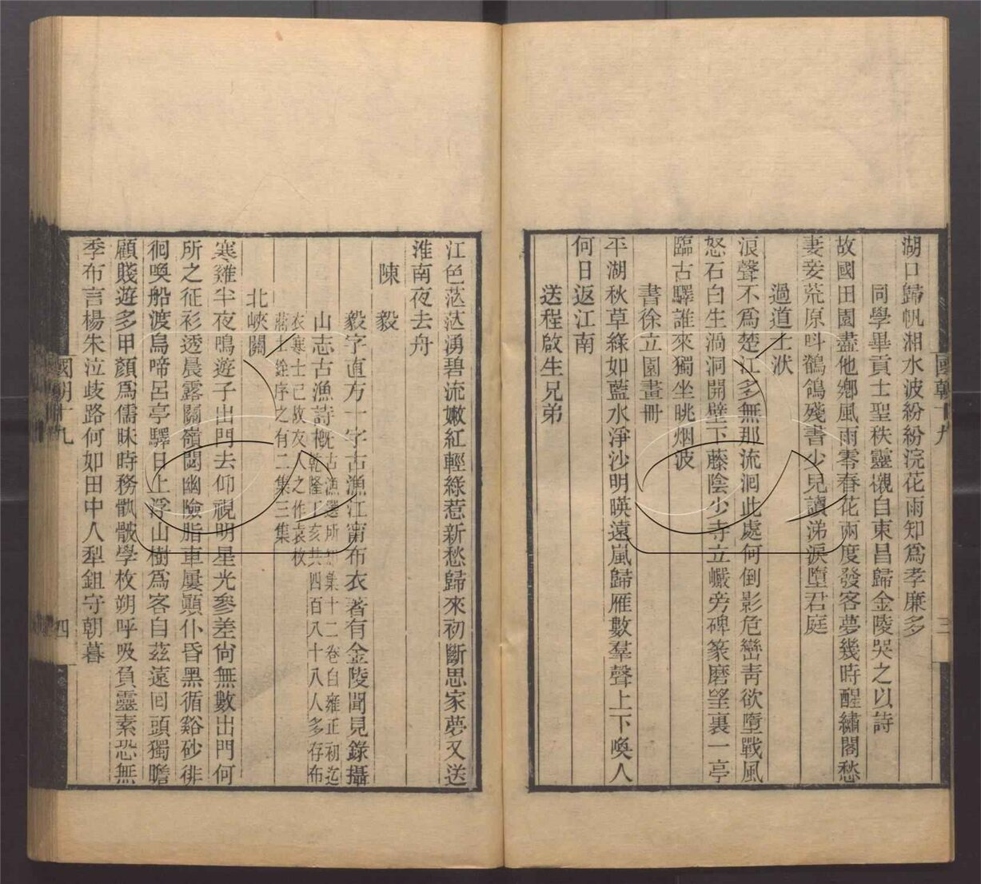 湖口歸帆湘水波紛紛浣花雨知爲孝廉多
同學畢貢士聖秩靈櫬自東昌歸金陵哭之以詩
故國田園盡他鄉風雨零春花兩度發客夢幾時醒繡閣愁
妻妾荒原叫鶺鴒殘書少兒讀涕淚墮君庭
過道士洑
浪聲不爲楚江多無那流洄此處何倒影危巒靑欲墮戰風
怒石白生渦洞開壁下藤陰少寺立巖旁碑篆磨望裏一亭
臨古驛誰來獨坐眺烟波
書徐立園畫冊
平湖秋草綠如藍水淨沙明暎遠嵐歸雁數羣聲上下喚人
何日返江南
送程啟生兄弟
國朝十九
三
江色茫茫湧碧流嫩紅輕綠惹新愁歸來初斷思家夢又送
淮南夜去舟
陳毅
毅字直方一字古漁江甯布衣著有金陵聞見錄攝
山志古漁詩槪古漁選所集十二卷自雍正初迄
乾隆丁亥共四百八十八人多存布
衣寒士已故友人之作袁枚
蔣士銓序之有二集三集
北峽關
寒雞半夜鳴遊子出門去仰視明星光參差尙無數出門何
所之征衫透晨露關嶺閟幽險脂車屢顚仆昏黑循谿砂徘
徊喚船渡鳥啼呂亭驛日上浮山樹爲客自茲遠回頭獨瞻
顧賤遊多甲顏爲儒昧時務骯髒學枚朔呼吸負靈素恐無
季布言楊朱泣歧路何如田中人犁鉏守朝暮
國朝十九
四